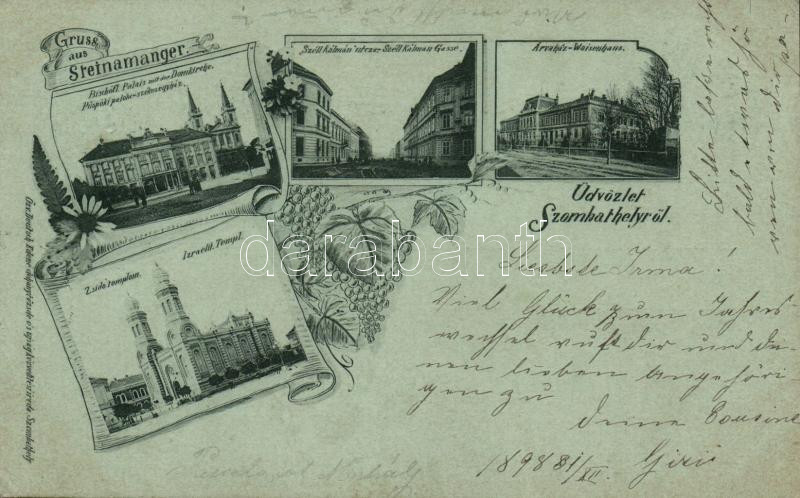 Gruss
aus
Steinamanger.
Bischöfl. Palais mit der Domkirche.
Püspöki palota-székesegyház.
Széll Kálmán utcza-Széll Kálman Gasse.
Arvaház-Waisenhaus.
Üdvözlet
Szombathelyről.
Zsidó templom.
Israelit. Templ.
darabanth
Bitte lasse recht
bald etwas
von dir
Liebste Irma!
Viel Glück zum Jahres
wechsel ruft dir und dei
nen lieben Angehöri
gen zu
deine Cousine
1898 31/XII.